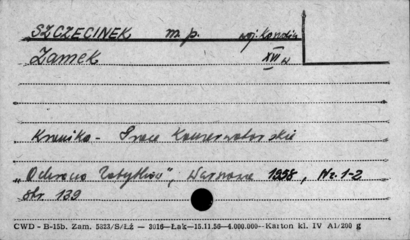 SZCZECINEK m. p. woj. koszalin
Zamek XVI w
Kronika - Prace Konserwatorskie
"Ochrona Zabytków", Warszawa 1958, Nr. 1-2
str. 139
CWD - B-15b. Zam. 5323/S/ŁŻ — 3016—Łak—15.11.50—4.000.000—Karton kl. IV A1/200 g